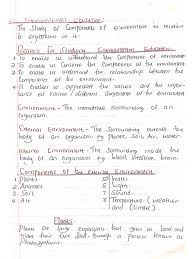 Environmental Education
The study of Components of environment in relation
to organism in it.
Reasons for Studying Environmental Education
To enable us understand the Component of environment
To enable us Conduct the Component of the environment
To enable us understand the relationship between the
Components of the environment.
To enable us understand the value and the
of various / different Component of the environment
Environment - The immediate surrounding of an
organism.
External Environment - The Surrounding outside the
body of an organism eg Plant, Soil, Air, Water
Internal Environment - The Surrounding inside the
body of an organism eg blood, intestine, brain.
Components of the Exterior Environment
1 Plants 5) Water
2 Animals 6) Light
3 Soil 7 Sound
4 Air 8 Temperature - (Weather
and Climate)
Plants
Plants are living organisms that grow on land and
make their own food through a process known as
Photosynthesis